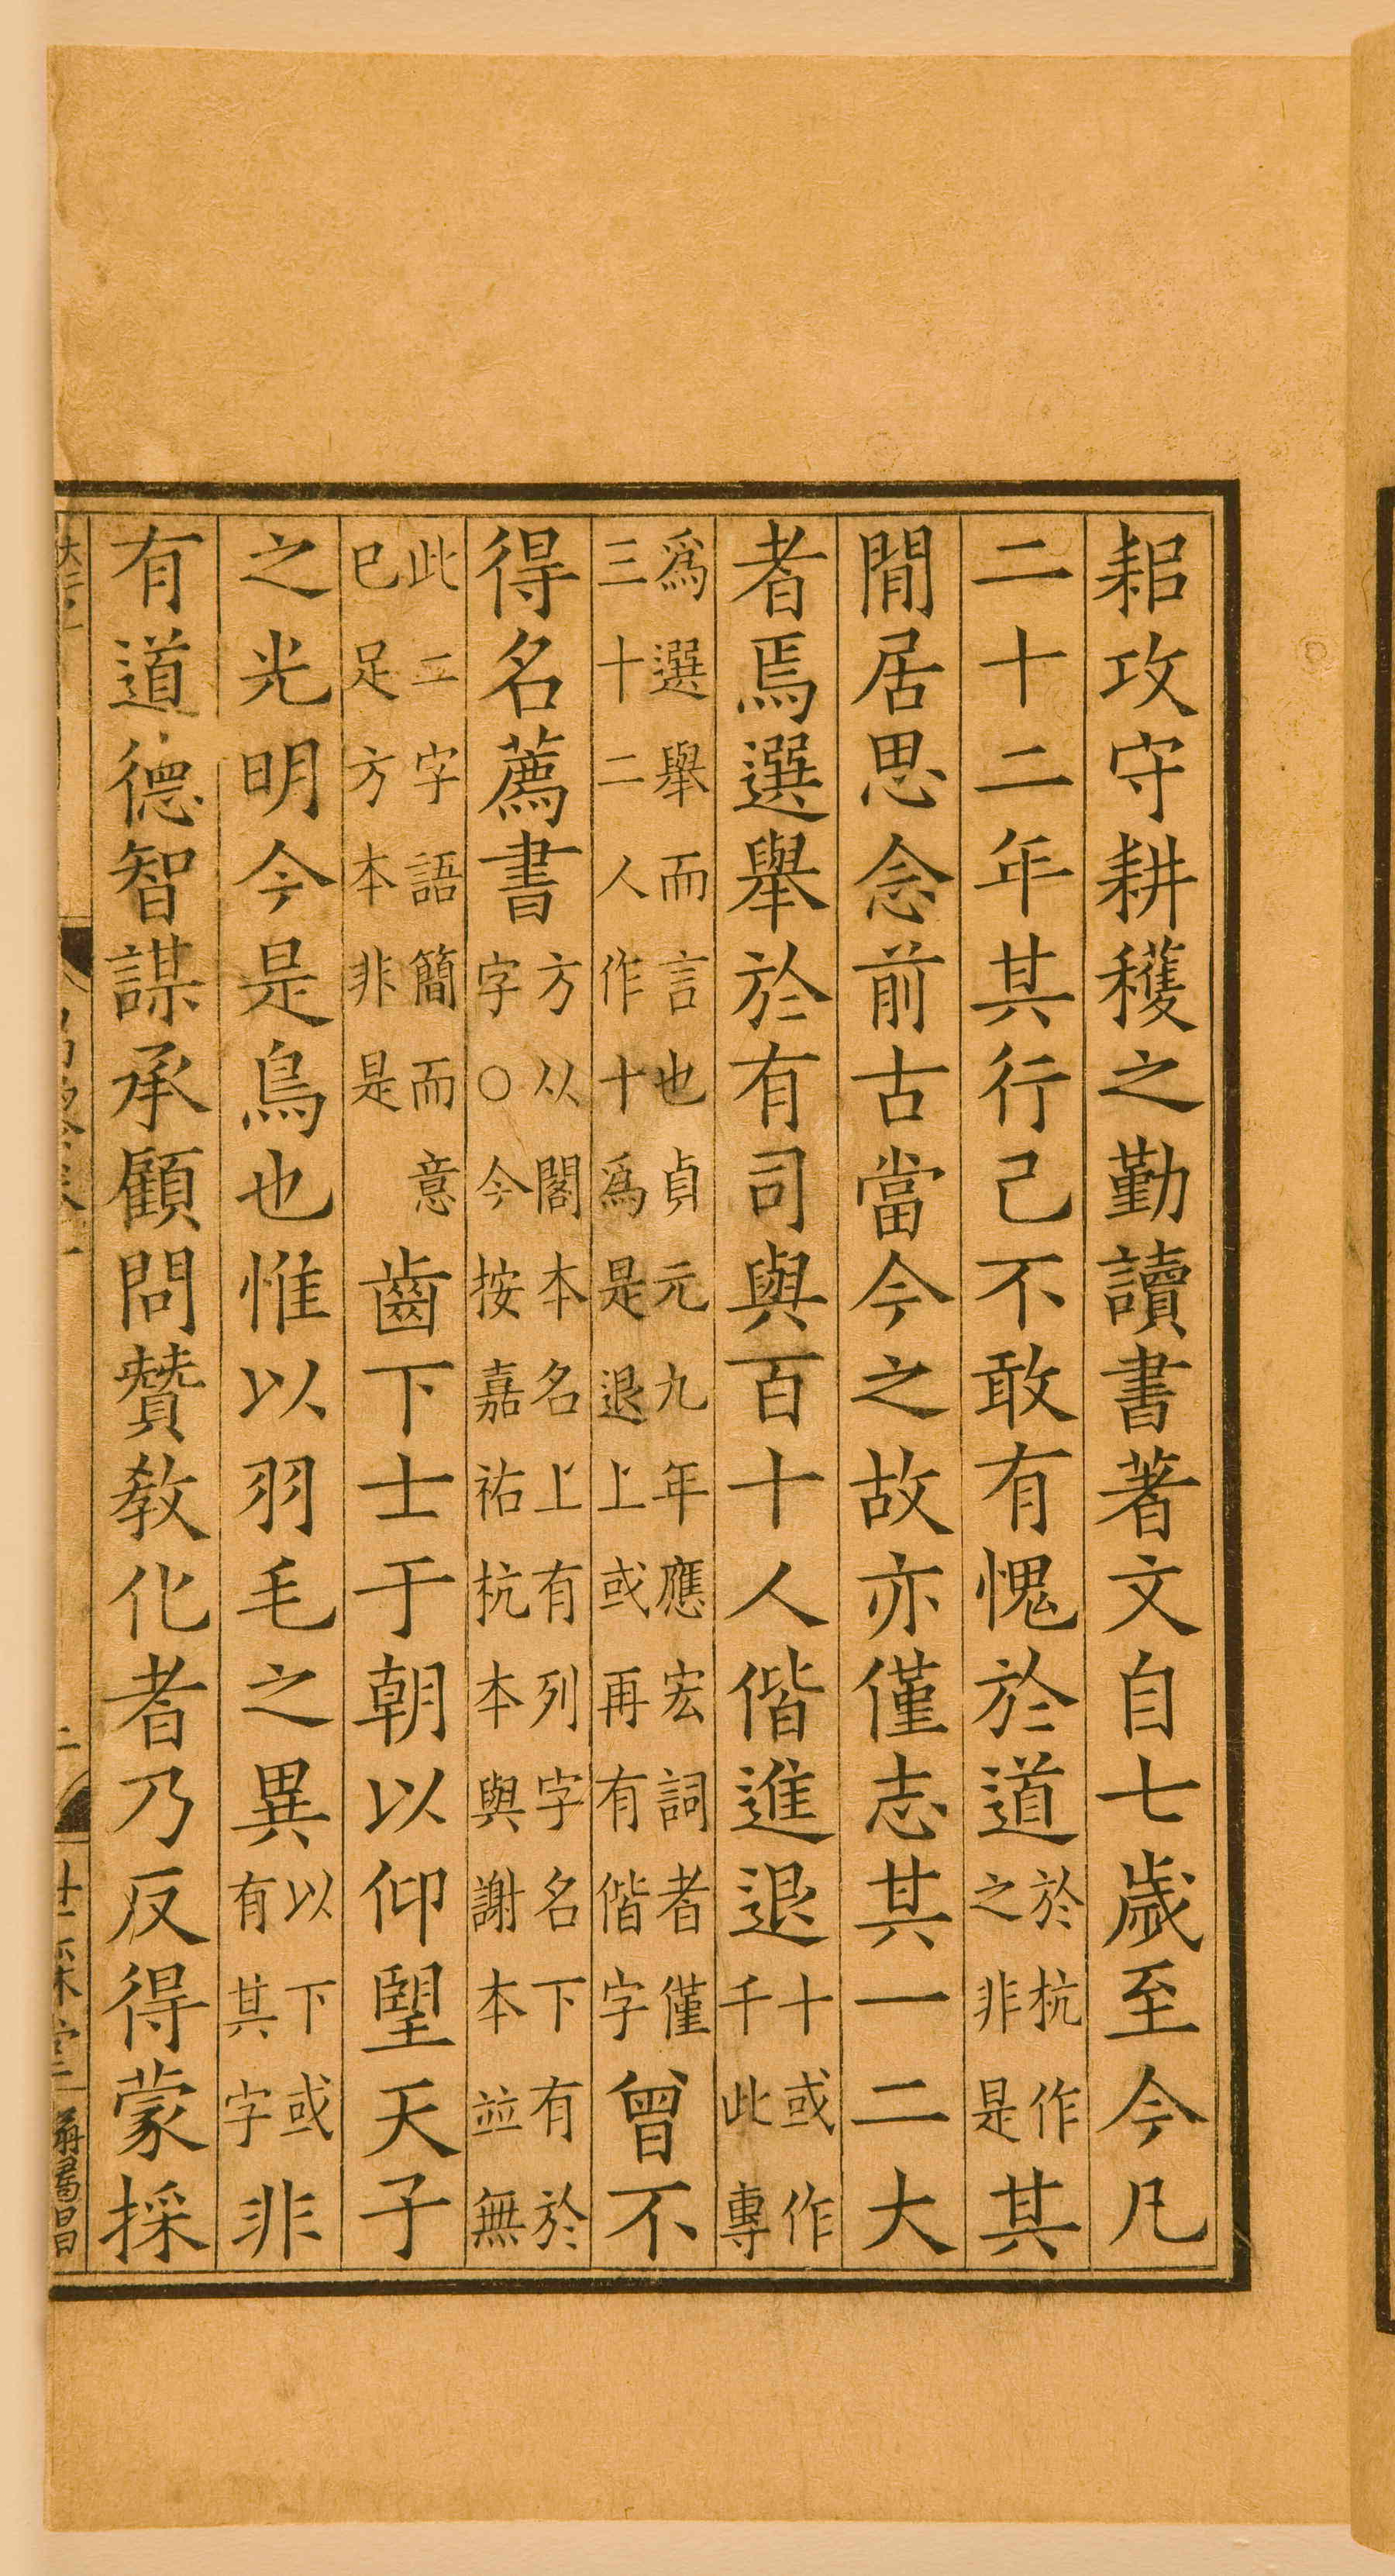 耜攻守耕穫之勤讀書著文自七歲至今凡
二十二年其行己不敢有愧於道於杭作之非是其
閒居思念前古當今之故亦僅志其一二大
者焉選舉於有司與百十人偕進退十或作千此專
爲選舉而言也貞元九年應宏詞者僅三十二人作十爲是退上或再有偕字曾不
得名薦書方以閣本名上有列字名下有於字○今按嘉祐杭本與謝本並無
此二字語簡而意已足方本非是齒下士于朝以仰望天子
之光明今是鳥也惟以羽毛之異以下或有其字非
有道德智謀承顧問贊敎化者乃反得蒙採